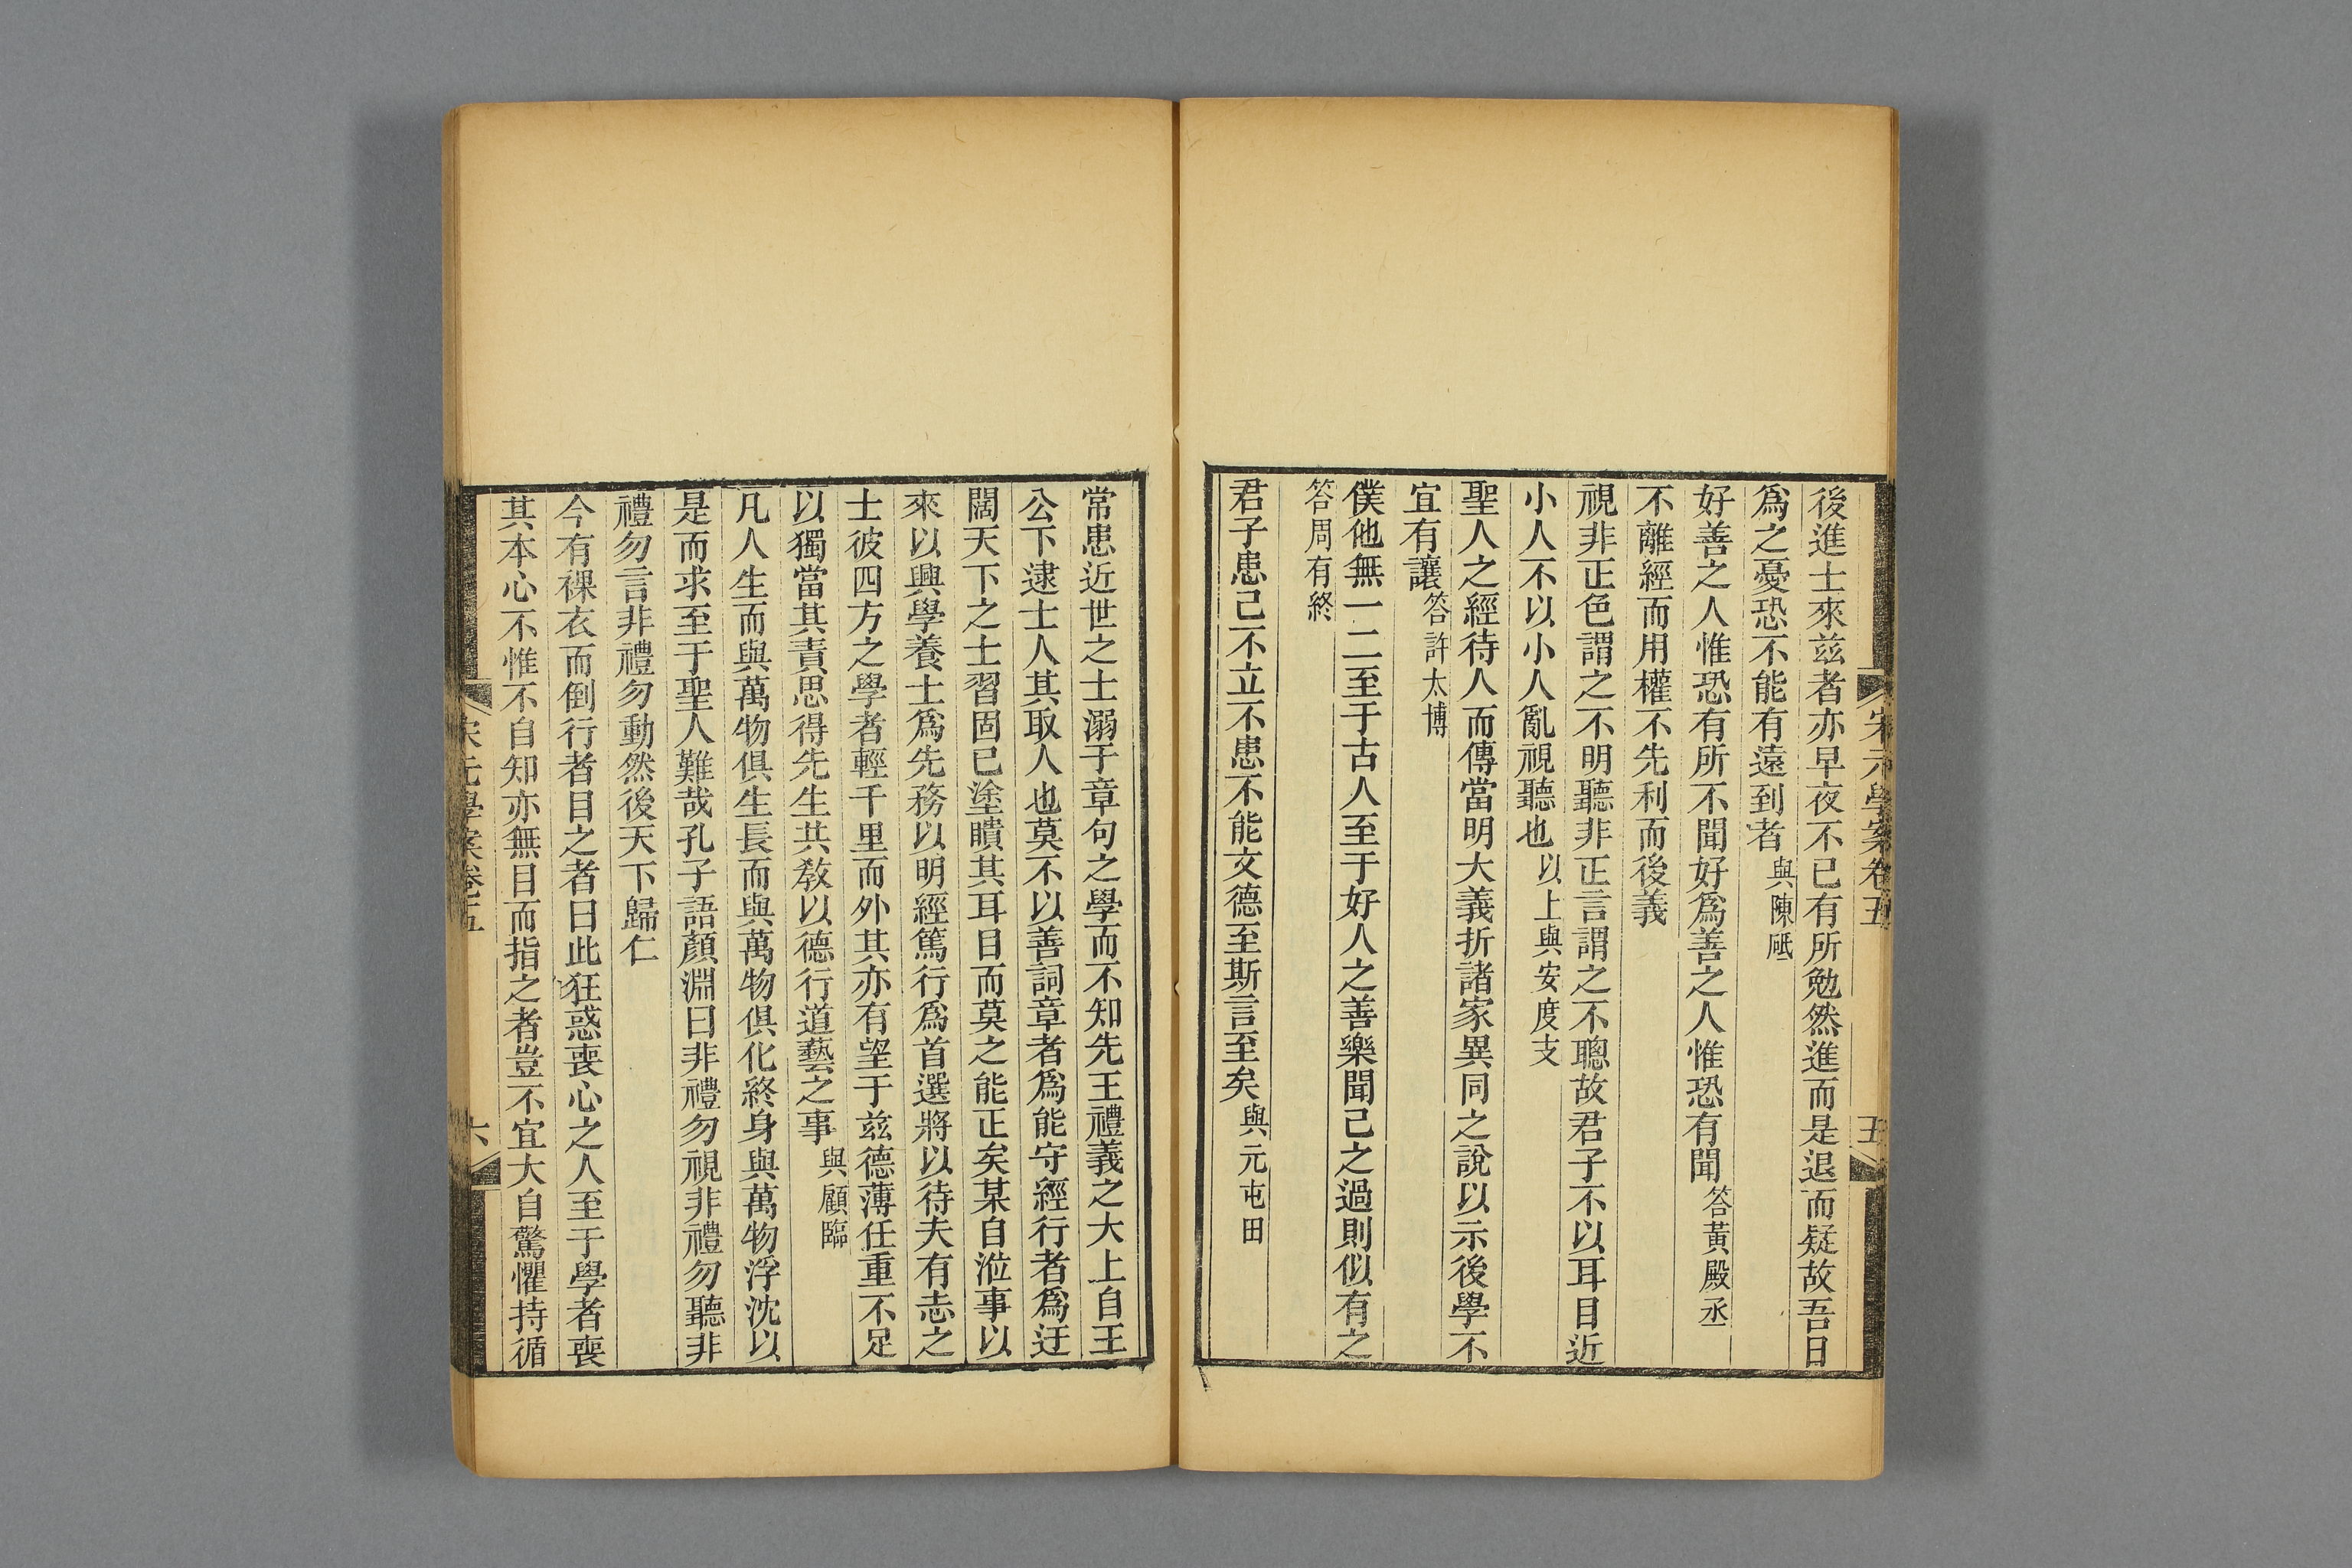 宋元學案卷五
五
後進士來兹者亦早夜不已有所勉然進而是退而疑故吾日
爲之憂恐不能有遠到者與陳砥
好善之人惟恐有所不聞好爲善之人惟恐有聞答黃殿丞
不離經而用權不先利而後義
視非正色謂之不明聽非正言謂之不聰故君子不以耳目近
小人不以小人亂視聽也以上與安度支
聖人之經待人而傳當明大義折諸家異同之說以示後學不
宜有讓答許太博
僕他無一二至于古人至于好人之善樂聞己之過則似有之
答周有終
君子患己不立不患不能文德至斯言至矣與元屯田
常患近世之士溺于章句之學而不知先王禮義之大上自王
公下逮士人其取人也莫不以善詞章者爲能守經行者爲迂
闊天下之士習固已塗瞶其耳目而莫之能正矣某自涖事以
來以興學養士爲先務以明經篤行爲首選將以待夫有志之
士彼四方之學者輕千里而外其亦有望于兹德薄任重不足
以獨當其責思得先生共教以德行道藝之事與顧臨
凡人生而與萬物俱生長而與萬物俱化終身與萬物浮沈以
是而求至于聖人難哉孔子語顏淵曰非禮勿視非禮勿聽非
禮勿言非禮勿動然後天下歸仁
今有裸衣而倒行者目之者曰此狂惑喪心之人至于學者喪
其本心不惟不自知亦無目而指之者豈不宜大自驚懼持循
宋元學案卷五
六